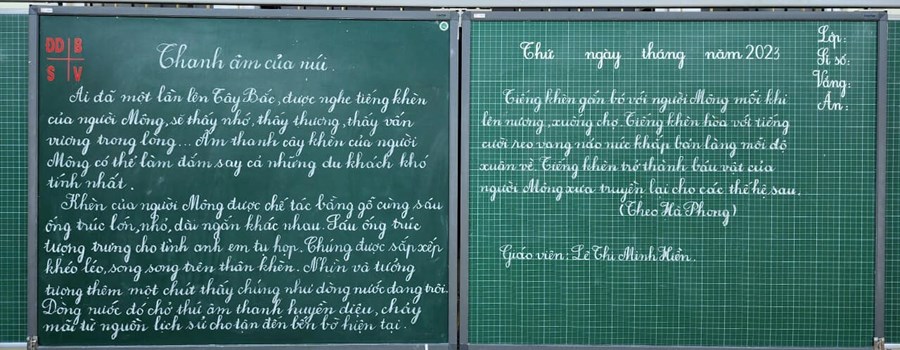 ĐD B
S V
Thanh âm của núi.
Ai đã một lần lên Tây Bắc, được nghe tiếng khèn
của người Mông, sẽ thấy nhớ, thấy thương, thấy vấn
vương trong lòng... Âm thanh cây khèn của người
Mông có thể làm đắm say cả những du khách khó
tính nhất.
Khèn của người Mông được chế tác bằng gỗ cùng sáu
ống trúc lớn, nhỏ, dài ngắn khác nhau. Sáu ống trúc
tượng trưng cho tình anh em tụ họp. Chúng được sắp xếp
khéo léo, song song trên thân khèn. Nhìn và tưởng
tượng thêm một chút thấy chúng như dòng nước đang trôi.
Dòng nước đó chở thứ âm thanh huyền diệu, chảy
mãi từ nguồn lịch sử cho tận đến bến bờ hiện tại.
Thứ ngày tháng năm 2023
Lớp:
Sĩ số:
Vắng:
Ăn:
Tiếng khèn gắn bó với người Mông mỗi khi
lên nương, xuống chợ. Tiếng khèn hòa với tiếng
cười reo vang náo nức khắp bản làng mỗi độ
xuân về. Tiếng khèn trở thành báu vật của
người Mông xưa truyền lại cho các thế hệ sau.
(Theo Hà Phong)
Giáo viên: Lê Thị Minh Hiền.